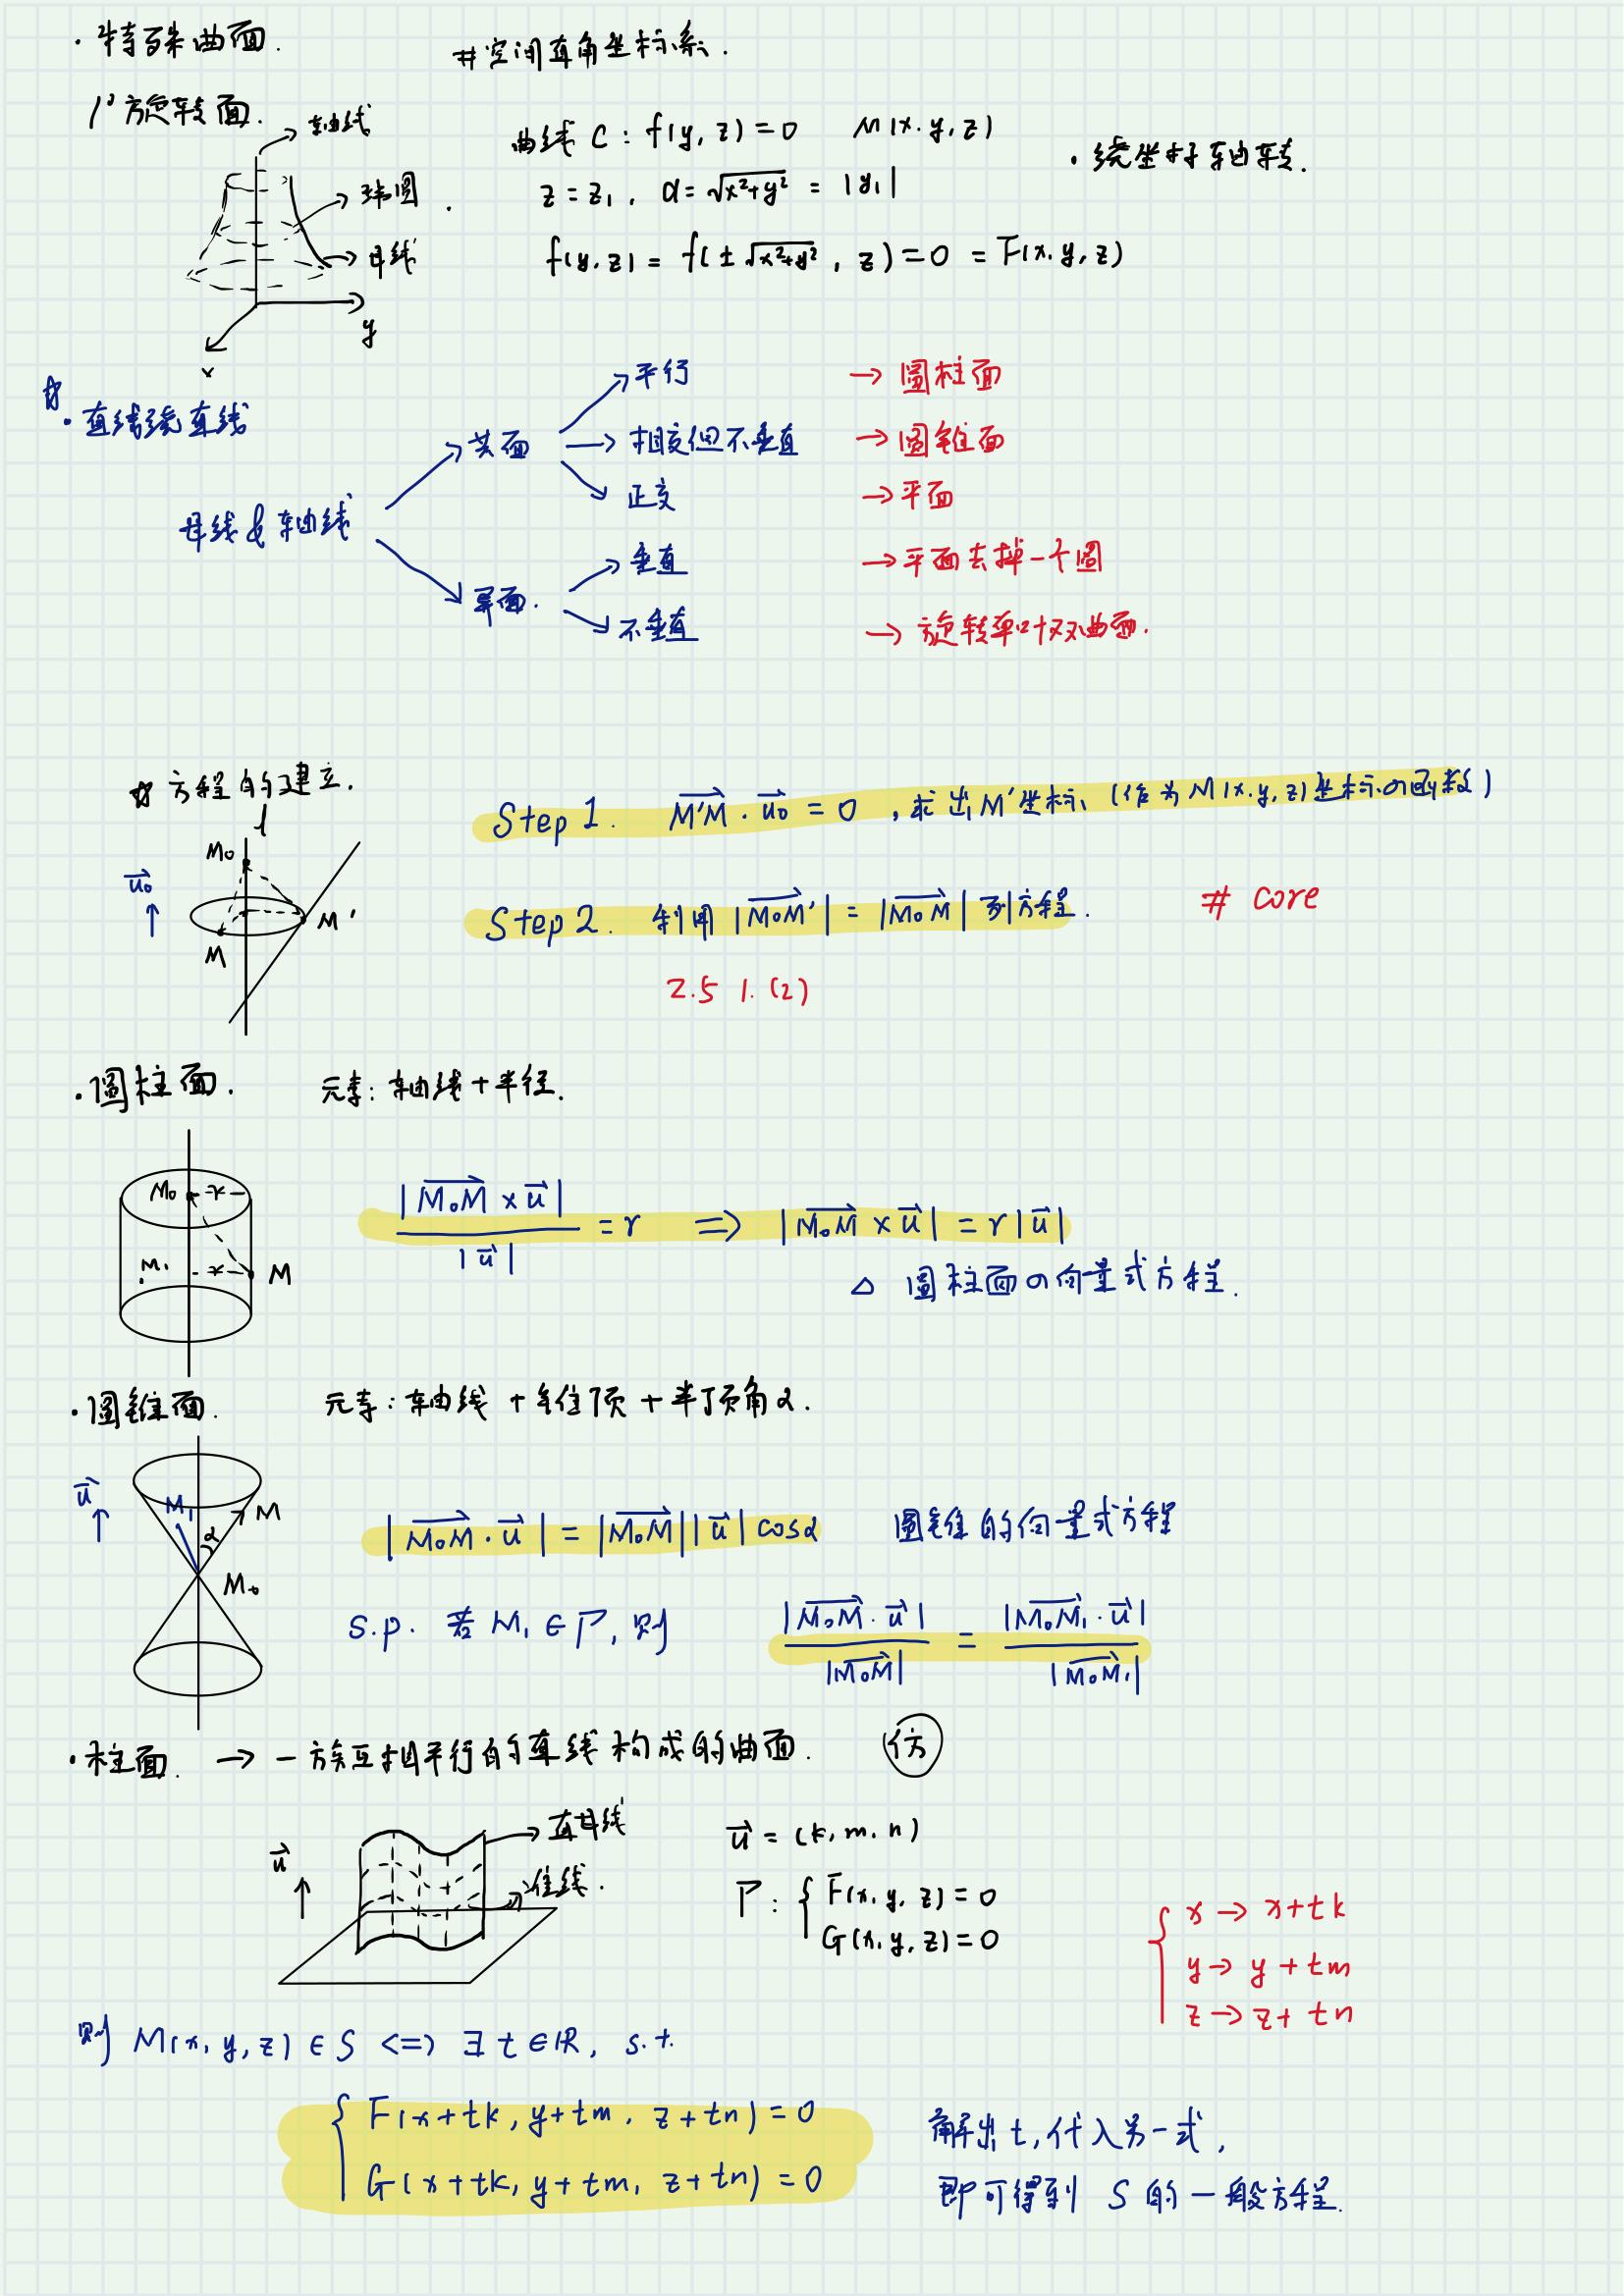 · 特殊曲面.
#空间直角坐标系.
1° 旋转面.
轴线
纬圆.
母线
y
x
曲线 C: f(y, z) = 0 M(x. y, z)
· 绕坐标轴转.
z = z₁, d = √(x²+y²) = |y₁|
f(y. z) = f(±√(x²+y²), z) = 0 = F(x. y, z)
☆
· 直线绕直线
母线 & 轴线
共面
平行 → 圆柱面
相交但不垂直 → 圆锥面
正交 → 平面
异面.
垂直 → 平面去掉一个圆
不垂直 → 旋转单叶双曲面.
☆ 方程的建立.
l
M₀
u₀
M'
M
Step 1. M'M · u₀ = 0 , 求出M'坐标 (作为 M(x. y, z) 坐标の函数)
Step 2. 利用 |M₀M'| = |M₀M| 列方程.
# core
2.5 1. (2)
· 圆柱面. 元素: 轴线 + 半径.
M₀ r
M₁ r M
|M₀M × u| / |u| = r ⇒ |M₀M × u| = r|u|
△ 圆柱面の向量式方程.
· 圆锥面. 元素: 轴线 + 锥顶 + 半顶角α.
u
M₁
M
α
M₀
|M₀M · u| = |M₀M||u| cosα 圆锥的向量式方程
s.p. 若 M₁ ∈ Γ, 则 |M₀M · u| / |M₀M| = |M₀M₁ · u| / |M₀M₁|
· 柱面. → 一族互相平行的直线构成的曲面. 仿
u
直母线
准线.
u = (k, m. n)
Γ: { F(x, y, z) = 0
G(x, y, z) = 0
{ x → x+tk
y → y+tm
z → z+tn
则 M(x, y, z) ∈ S <=> ∃ t ∈ R, s.t.
{ F(x+tk, y+tm. z+tn) = 0
G(x+tk, y+tm, z+tn) = 0
解出 t, 代入另一式,
即可得到 S 的一般方程.